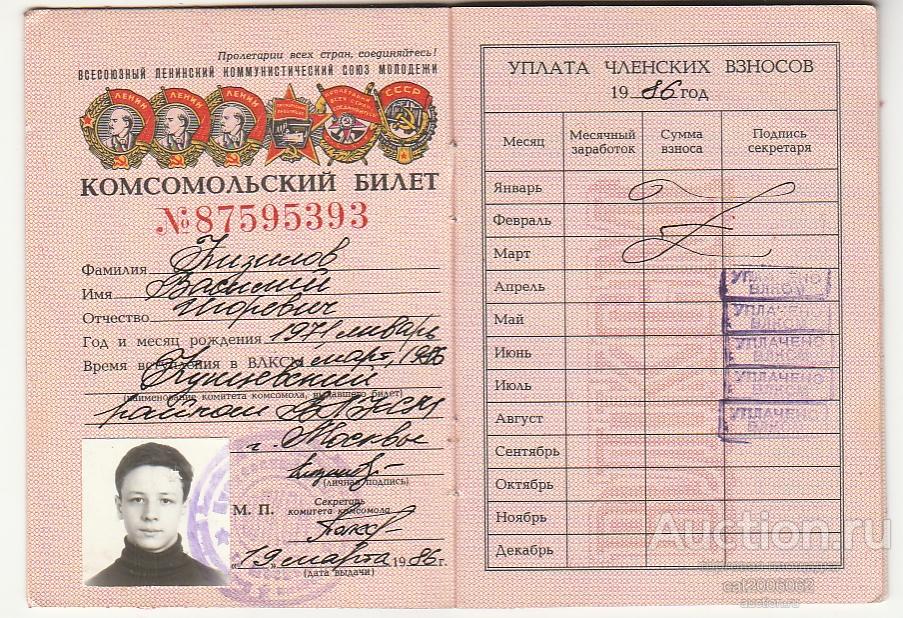 Пролетарии всех стран, соединяйтесь!
ВСЕСОЮЗНЫЙ ЛЕНИНСКИЙ КОММУНИСТИЧЕСКИЙ СОЮЗ МОЛОДЕЖИ
ЛЕНИН ЛЕНИН ЛЕНИН СССР
КОМСОМОЛЬСКИЙ БИЛЕТ
№87595393
Фамилия
Имя Василий
Отчество Игоревич
Год и месяц рождения 1971 январь
Время вступления в ВЛКСМ март, 1986
Кунцевский
(наименование комитета комсомола, выдавшего билет)
райком ВЛКСМ
г. Москвы
(личная подпись)
М. П.
Секретарь
комитета комсомола
"19" марта 1986 г.
(дата выдачи)
УПЛАТА ЧЛЕНСКИХ ВЗНОСОВ
1986 год
Месяц Месячный заработок Сумма взноса Подпись секретаря
Январь
Февраль
Март
Апрель УПЛАЧЕНО ВЛКСМ
Май УПЛАЧЕНО ВЛКСМ
Июнь УПЛАЧЕНО ВЛКСМ
Июль УПЛАЧЕНО ВЛКСМ
Август УПЛАЧЕНО ВЛКСМ
Сентябрь
Октябрь
Ноябрь
Декабрь
Auction.ru
cat2006062
auction.ru